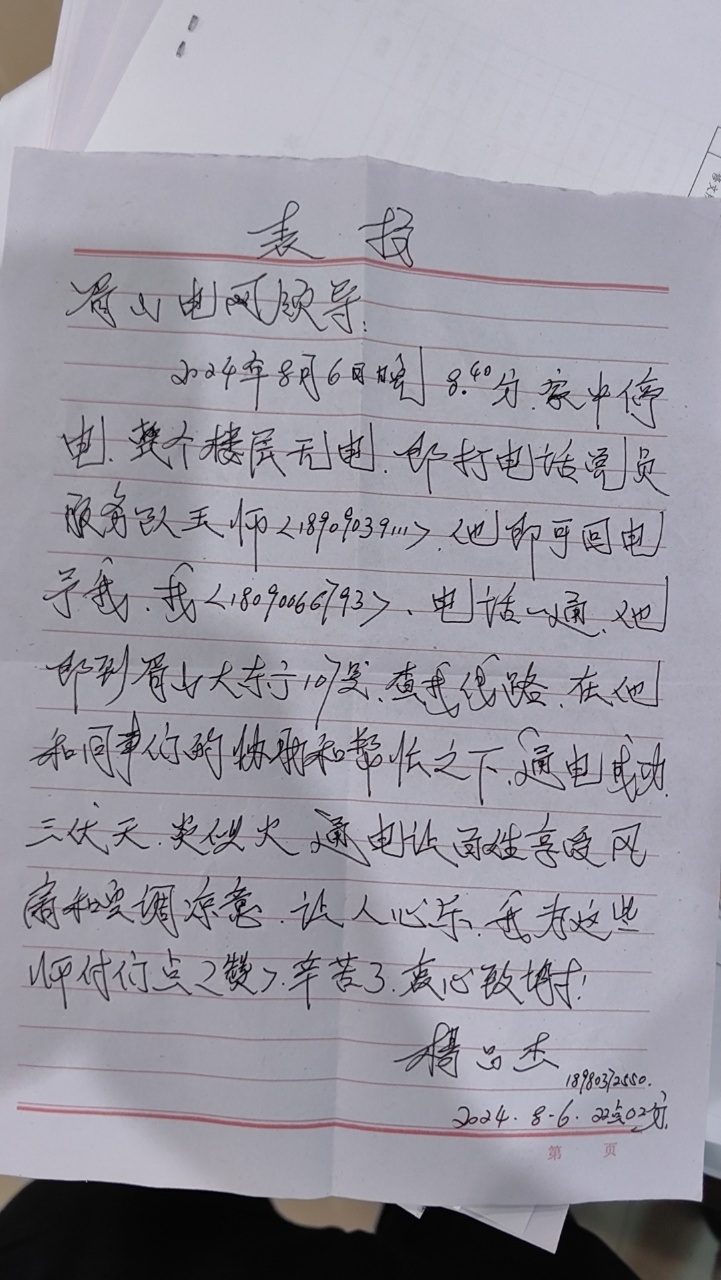 表扬
眉山电网领导:
2024年8月6日晚 8.40分.家中停
电.整个楼层无电.即打电话党员
服务队王师<18909039111>.他即可回电
予我.我<18090066793>、电话一通.他
即到眉山大东街107号.查找线路.在他
和同事们的协助和帮忙之下.通电成功.
三伏天.炎似火.通电让百姓享受风
扇和空调凉意.让人心乐.我为这些
师付们点<赞>.辛苦了.衷心致谢!
杨品杰
18980372550.
2024.8-6.22点02分.
第 页